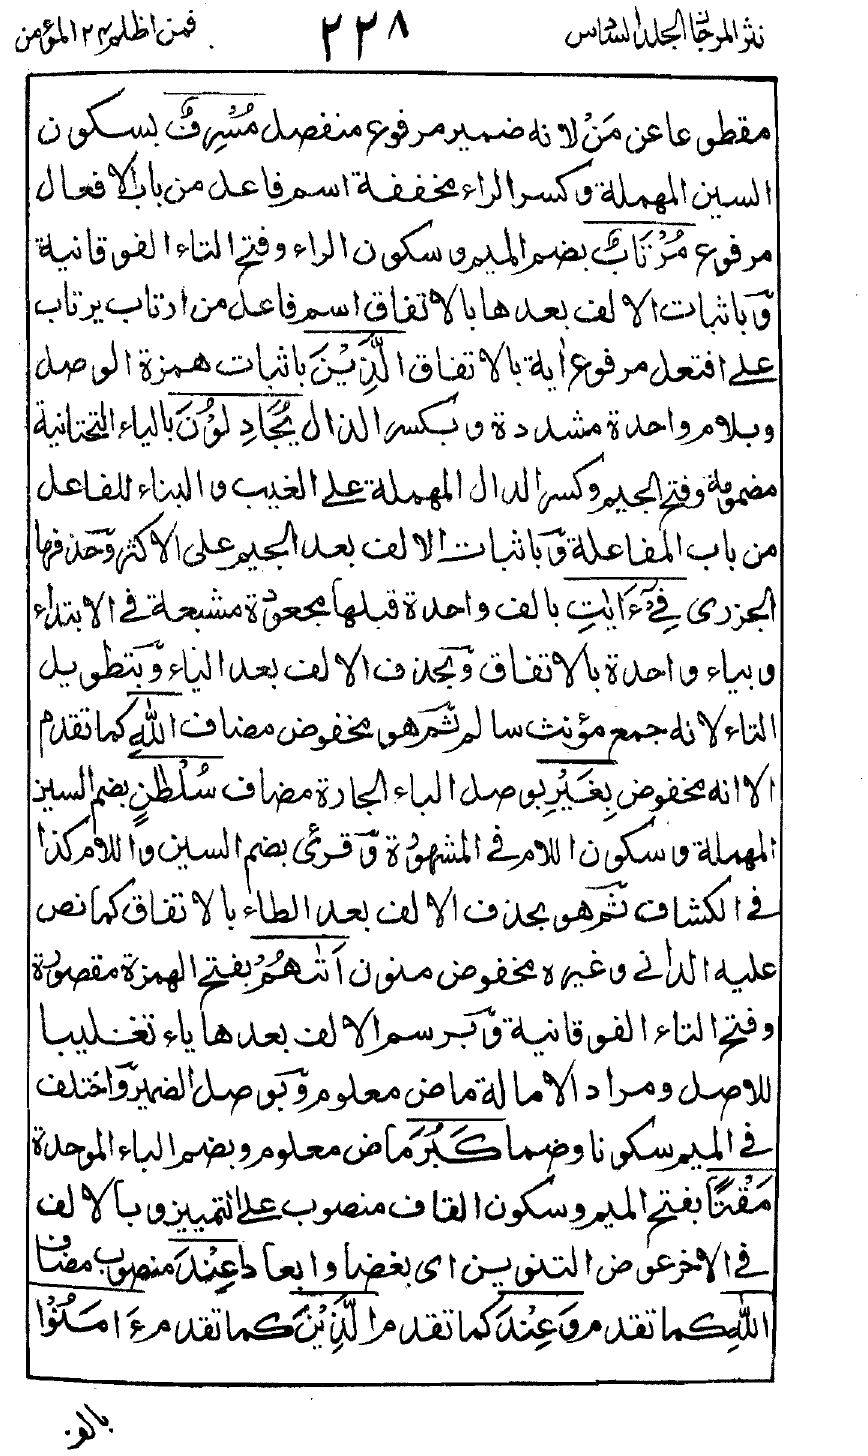 نثر المرجان المجلد السادس
٢٢٨
فمن اظلم ٢٤ المؤمن
مقطوعا عن مَنْ لانه ضمير مرفوع منفصل مُسْرِفٌ بسكون
السين المهملة وكسر الراء مخففة اسم فاعل من باب الافعال
مرفوع مُرْتَابٌ بضم الميم وسكون الراء وفتح التاء الفوقانية
وّباثبات الالف بعدها بالاتفاق اسم فاعل من ارتاب يرتاب
على افتعل مرفوع اٰية بالاتفاق الَّذِيْنَ باثبات همزة الوصل
وبلام واحدة مشددة وبكسر الذال يُجَادِلُوْنَ بالياء التحتانية
مضمومة وفتح الجيم وكسر الدال المهملة على الغيب والبناء للفاعل
من باب المفاعلة وّباثبات الالف بعد الجيم على الاكثر وّحذفها
الجزرى فِيْٓ ءَايٰتِ بالف واحدة قبلها مجعودة مشبعة في الابتداء
وبياء واحدة بالاتفاق وّبحذف الالف بعد الياء وّبتطويل
التاء لانه جمع مؤنث سالم ثم هو مخفوض مضاف اللّٰهِ كما تقدم
الا انه مخفوض بِغَيْرِ بوصل الباء الجارة مضاف سُلْطٰنٍ بضم السين
المهملة وسكون اللام في المشهورة وّقرئ بضم السين واللام كذا
في الكشاف ثم هو بحذف الالف بعد الطاء بالاتفاق كما نص
عليه الدانى وغيره مخفوض منون اَتٰىهُمْ بفتح الهمزة مقصورة
وفتح التاء الفوقانية وّبرسم الالف بعدها ياء تغليبا
للاصل ومراد الامالة ماض معلوم وّبوصل الضمير وّاختلف
في الميم سكونا وضما كَبُرَ ماض معلوم وبضم الباء الموحدة
مَقْتًا بفتح الميم وسكون القاف منصوب على التمييز وبالالف
في الاخر عوض التنوين اى بغضا وابعادا عِنْدَ منصوب مضاف
اللّٰهِ كما تقدم وَعِنْدَ كما تقدم الَّذِيْنَ كما تقدم ءَامَنُوْا
بالف